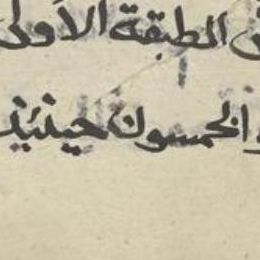 الطبقة الاولى
والخمسون حينئذ